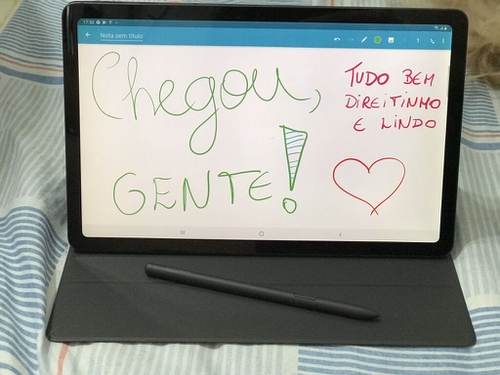 Nota sem título
Chegou,
GENTE!
TUDO BEM
DIREITINHO
E LINDO